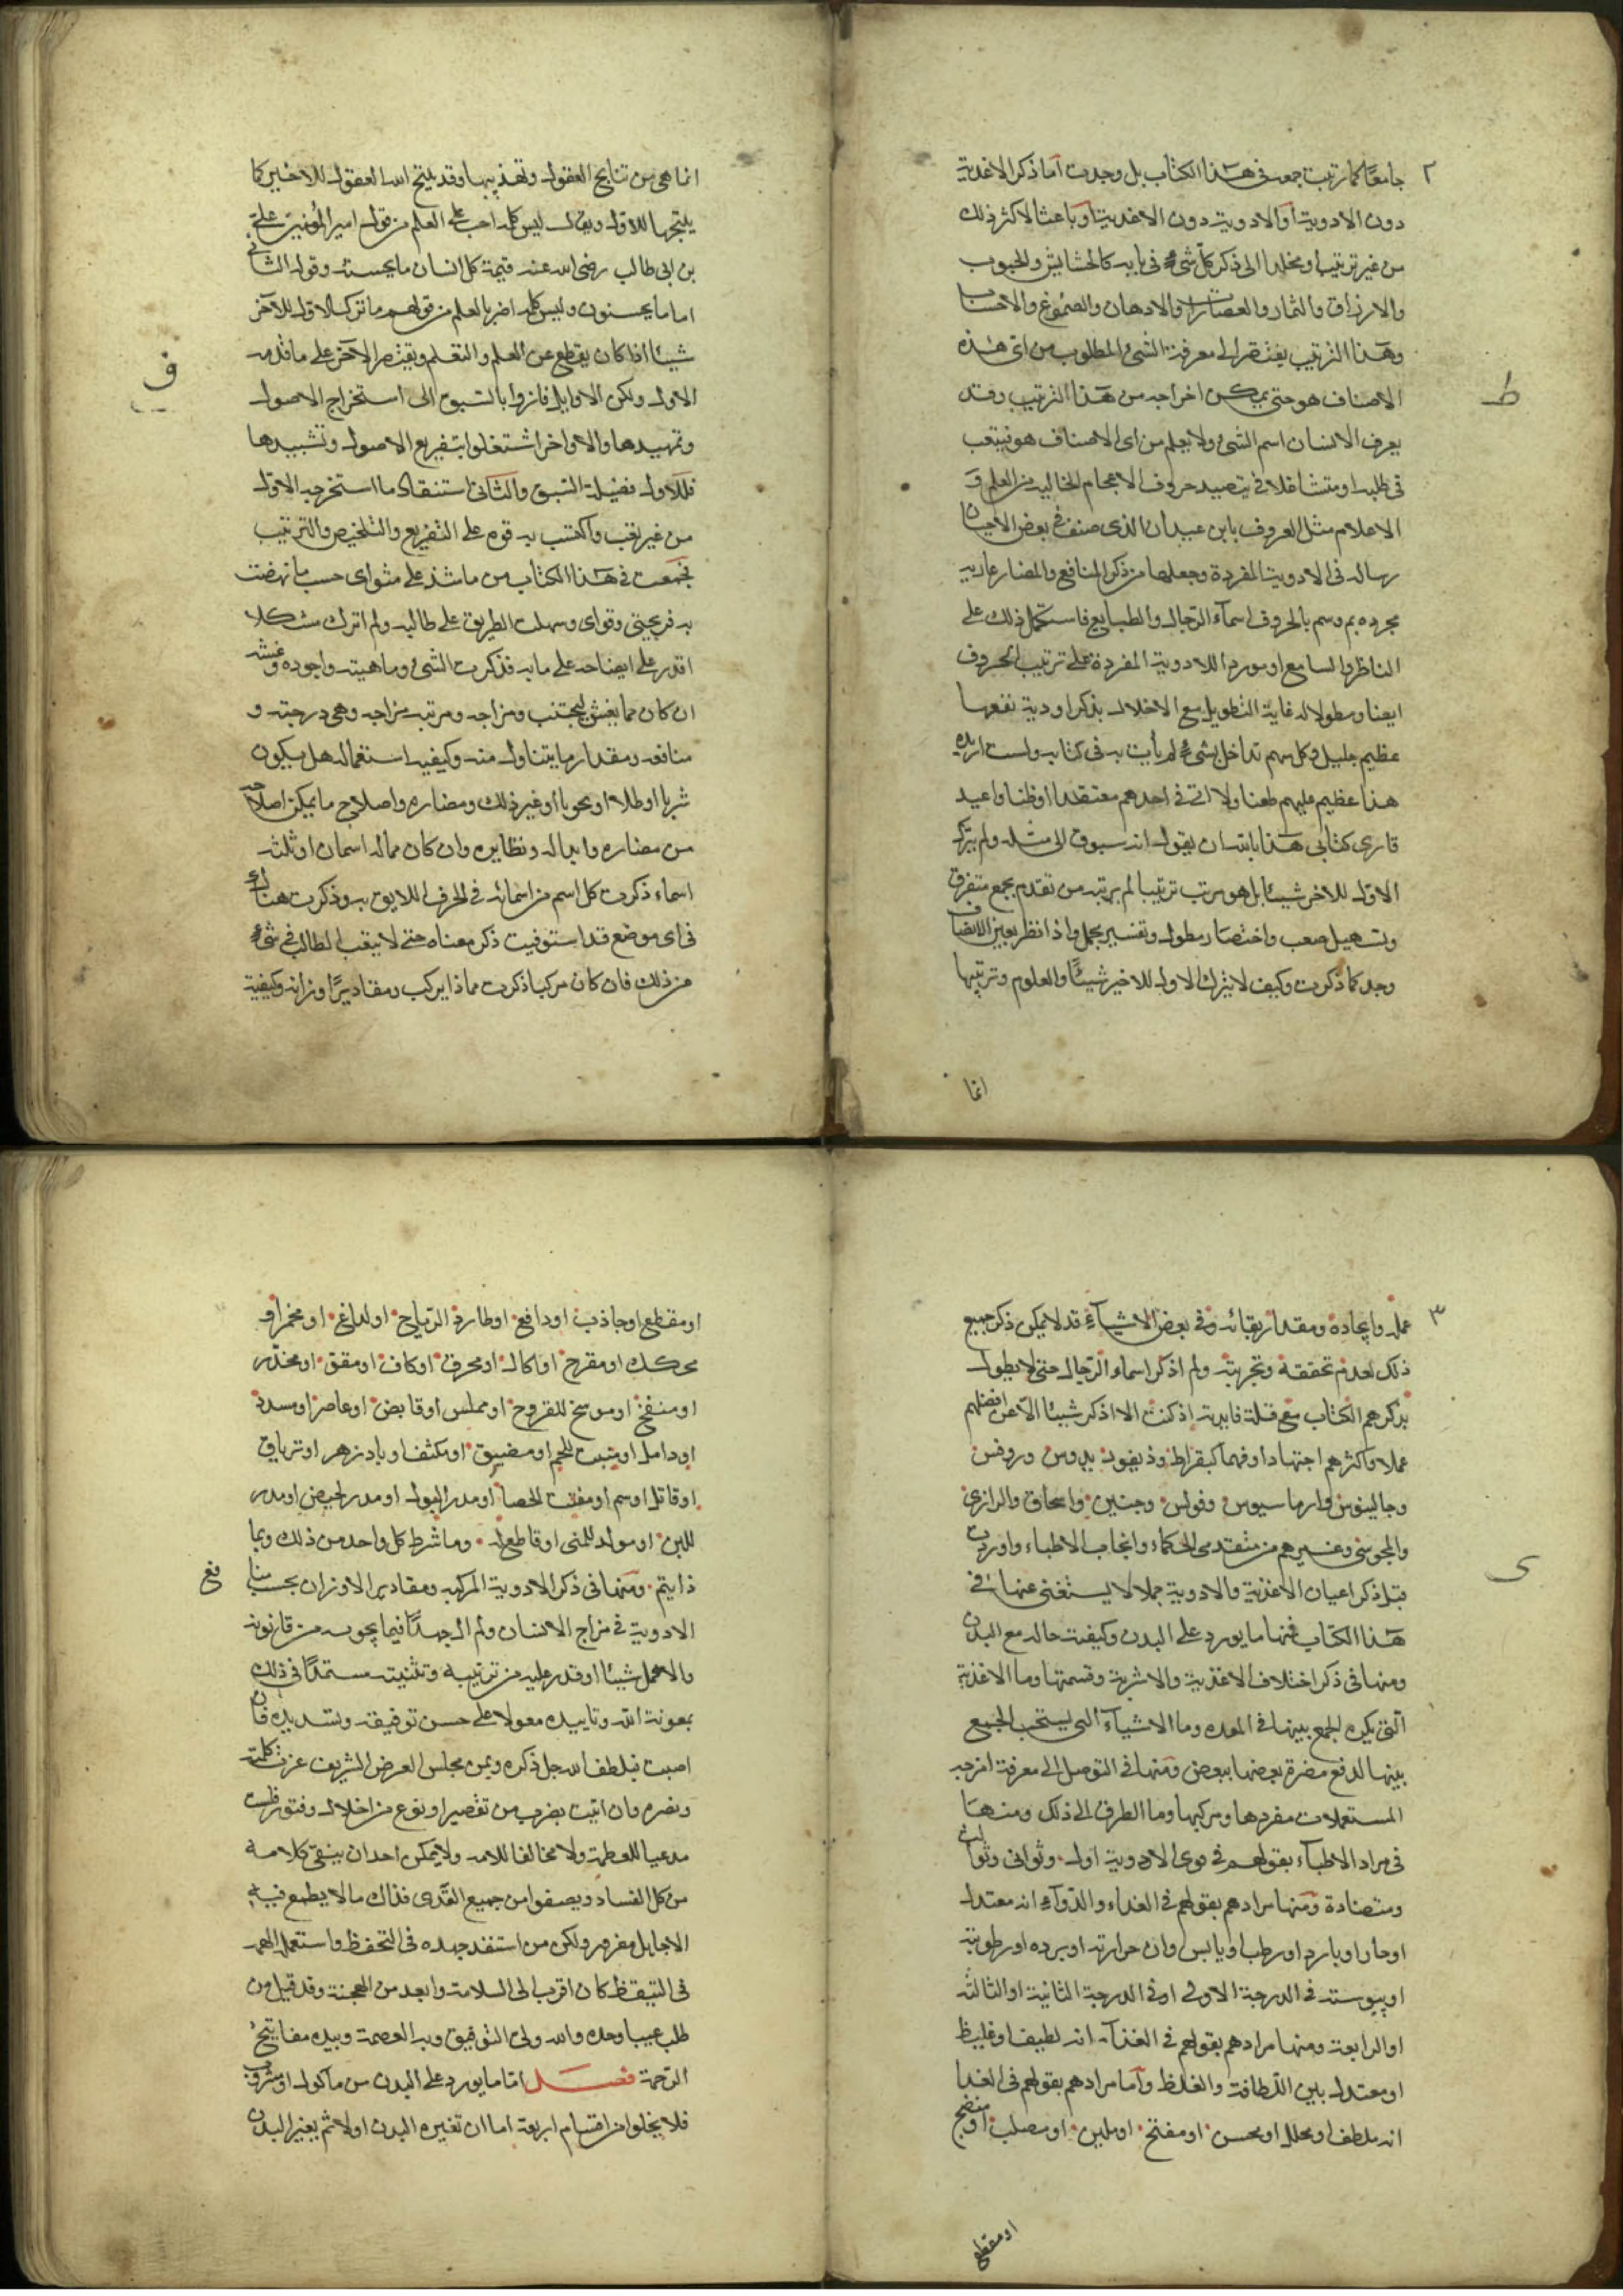 ٢
جامعا كما رتبت جمعه فى هذا الكتاب بل وجدت اما ذكر الاغذية
دون الادوية او الادوية دون الاغذية او باعثا لاكثر ذلك
من غير ترتيب او مخلدا الى ذكر كل شىء فى بابه كالحشايش والحبوب
والاوراق والثمار والعصارات والادهان والصموغ والاحسا
وهذا الترتيب يفتقر الى معرفة الشىء المطلوب من اى هذه
الاصناف هو حتى يمكن اخراجه من هذا الترتيب وقد
ط
يعرف الانسان اسم الشىء ولا يعلم من اى الاصناف هو فيتعب
فى طلبه او متشاغلا فى حروف الاعجام الخاليه من العلم و
الاعلام مثل المعروف بابن عبدان الذى صنف فى بعض الاحيان
رساله فى الادوية المفردة وجعلها من ذكر المنافع والمضار عاريه
مجرده ثم وسم بالحروف اسماء الرجال والطبايع فاستكمل ذلك على
الناظر والسامع او مورد اللادوية المفردة على ترتيب الحروف
ايضا ومطولا له غاية التطويل مع الاخلال بذكر ادوية نفعها
عظيم جليل وكل منهم تداخل بشىء لم يأت به فى كتابه ولست اريد
هذا عظيم عليهم طعنا ولا انى فى احدهم معتقدا او ظنا واعيد
قارى كتابى هذا بالله ان يقول انه سبوق الى مثله ولم يترك
الاول للاخر شيئا بل هو مرتب ترتيبا لم يرتبه من تقدم بجمع متفرق
وتسهيل صعب واختصار مطول وتفسير مجمل واذا نظر بعين الانصاف
وجد كما ذكرت وكيف لا يترك الاول للاخير شيئا والعلوم وترتيبها
انما
انما هى من نتايج العقول وتهذيبها وقد يلتج الله العقول للاخير كما
يلتجها للاول ويقال ليس كلمه احب على العلم من قول امير المؤمنين على
بن ابى طالب رضى الله عنه قيمة كل انسان ما يحسنه وقول الثانى
اما ما يحسنون وليس كلمه اضر بالعلم من قولهم ما ترك الاول للآخر
شيئا اذا كان يقطع عن العلم والتعلم ويقتصر الآخر على ما قدمه
ف
الاول ولكن الاوايل فازوا بالسبق الى استخراج الاصول
وتمهيدها والاواخر اشتغلوا بتفريع الاصول وتشييدها
فللاول فضيلة السبق والثانى استنقاذ ما استخرجه الاول
من غير تعب واكتسب به قوه على التفريع والتلخيص والترتيب
فجمعت فى هذا الكتاب من ما شذ على مثواى حسب ما نهضت
به قريحتى وقواى وسهلت الطريق على طالبه ولم اترك مشكلا
اقدر على ايضاحه على ما به فذكرت الشىء وماهيته واجوده وغشه
ان كان مما يغش ليجتنب ومزاجه ومرتبه مزاجه وهى درجته و
منافعه ومقدار ما يتناول منه وكيفيه استعماله هل يكون
شربا او طلاء او نحو با او غير ذلك ومضاره واصلاح ما يمكن اصلاحه
من مضاره وابداله ونظايره وان كان مما له اسمان او ثلثه
اسماء ذكرت كل اسم من اسمائه فى الحرف اللايق به وذكرت هناك
فى اى موضع قد استوفيت ذكر معناه حتى لا يتعب الطالب فى شىء
من ذلك فان كان مركبا ذكرت مماذا يركب ومقادير اوزانه وكيفية
٣
عمله وايجاده ومقدار بقائه وفى بعض الاشياء قد لا يمكن ذكر جميع
ذلك لعدم تحققه وتجربته ولم اذكر اسماء الرجال حتى لا يطول
بذكرهم الكتاب مع قلة فايدته اذ كنت الا اذكر شيئا الا عن افضلهم
عملا واكثرهم اجتهادا وفهما كبقراط وذيقوريدوس وروفس
وجالينوس وارماسيوس وفولس وحنين واسحاق والرازى
والمجوسى وغيرهم من متقدمى الحكماء وانجاب الاطباء واوردت
قبل ذكر اعيان الاغذية والادوية جملا لا يستغنى عنها فى
ى
هذا الكتاب فمنها ما يورد على البدن وكيفية حاله مع البدن
ومنها فى ذكر اختلاف الاغذية والاشربة وقسمتها وما الاغذية
التى يكره الجمع بينها فى المعده وما الاشياء التى يستحب الجمع
بينها لدفع مضرة بعضها ببعض ومنها فى التوصل الى معرفة امزجه
المستعملات مفردها ومركبها وما الطرق الى ذلك ومنها
فى مراد الاطباء بقولهم فى قوى الادوية اول وثوانى وثوالث
ومتضادة ومنها مرادهم بقولهم فى الغذاء والدواء انه معتدل
او حار او بارد او رطب او يابس وان حرارته او برده او رطوبته
او يبوسته فى الدرجة الاولى او فى الدرجة الثانية او الثالثه
او الرابعة ومنها مرادهم بقولهم فى الغذاء انه لطيف او غليظ
او معتدل بين اللطافة والغلظ واما مرادهم بقولهم فى الغذا
انه ملطف او محلل او مخشن او مفتح او ملين او مصلب او منضج
او مقطع
او مقطع او جاذب او دافع او طارد الرياح او لذاغ او محمر او
محكك او مقرح او اكال او محرق او كاف او مقو او مخدر
او منفخ او موسخ للقروح او مملس او قابض او عاصر او مسدد
او دامل او منبت للحم او مضيق او مكثف او بادزهر او ترياق
او قاتل او سم او مفتت للحصا او مدر البول او مدر الحيض او مدر
للبن او مولد للمنى او قاطع له وما شرط كل واحد من ذلك وبما
ذا يتم ومنها فى ذكر الادوية المركبه ومقادير الاوزان بحسب منا
فع
الادوية فى مزاج الانسان ولم ال جهدا فيما يجوب من قانونه
والا همل شيئا اقدر عليه من ترتيبه وتثنيته مستمدا فى ذلك
بمعونة الله وتاييده معولا على حسن توفيقه وتسديده فان
اصبت فبلطف الله جل ذكره ويمن مجلس العرض الشريف عزت كلمته
ونصره وان اتيت بضرب من تقصير او نوع من اخلال وفتور فلست
مدعيا للعظمة ولا مخالفا للامه ولا يمكن احد ان ينقى كلامه
من كل الفساد ويصفوا من جميع القذى فذاك ما لا يطمع فيه
الا جاهل مغرور ولكن من استنفد جهده فى التحفظ واستعمل الهمه
فى التيقظ كان اقرب الى السلامة وابعد من الهجنة وقد قيل من
طلب عيبا وجده والله ولى التوفيق وبه العصمة وبيده مفاتيح
الرحمة فصل اما ما يورد على البدن من مأكول او مشروب
فلا يخلوا من اقسام اربعة اما ان تغيره البدن اولا ثم يغير البدن